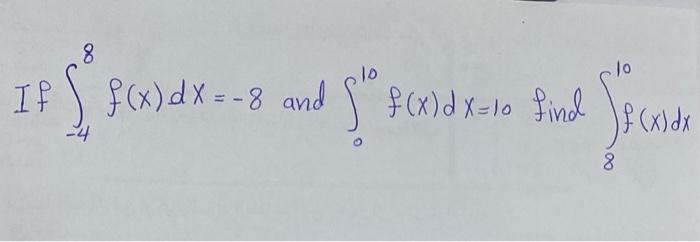 If ∫_{-4}^{8} f(x)dx = -8 and ∫_{0}^{10} f(x)dx=10 find ∫_{8}^{10} f(x)dx